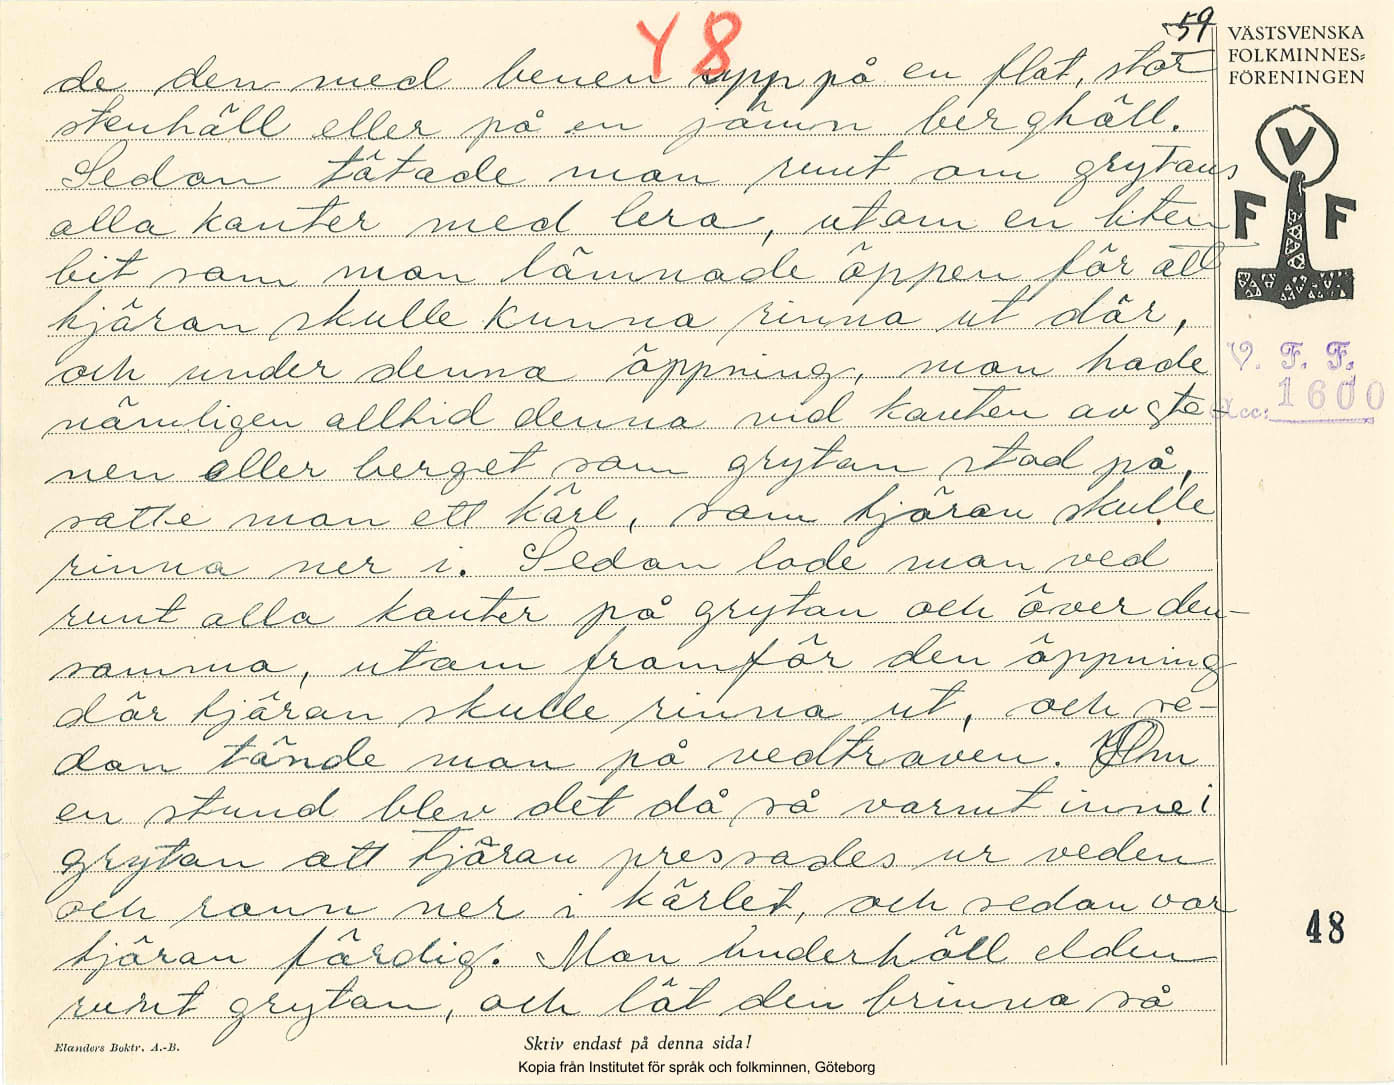 Y 8
59
VÄSTSVENSKA
FOLKMINNES=
FÖRENINGEN
V
F F
V. F. F.
Acc: 1600
de den med benen upp på en flat, stor
stenhäll eller på en jämn berghäll.
Sedan tätade man runt om grytans
alla kanter med lera, utom en liten
bit som man lämnade öppen för att
tjäran skulle kunna rinna ut där,
och under denna öppning, man hade
nämligen alltid denna vid kanten av ste-
nen eller berget som grytan stod på,
satte man ett kärl, som tjäran skulle
rinna ner i. Sedan lade man ved
runt alla kanter på grytan och över den-
samma, utom framför den öppning
där tjäran skulle rinna ut, och se-
dan tände man på vedtraven. Om
en stund blev det då så varmt inne i
grytan att tjäran pressades ur veden
och rann ner i kärlet, och sedan var
tjäran färdig. Man underhöll elden
runt grytan, och lät den brinna så
48
Elanders Boktr. A.-B.
Skriv endast på denna sida!
Kopia från Institutet för språk och folkminnen, Göteborg